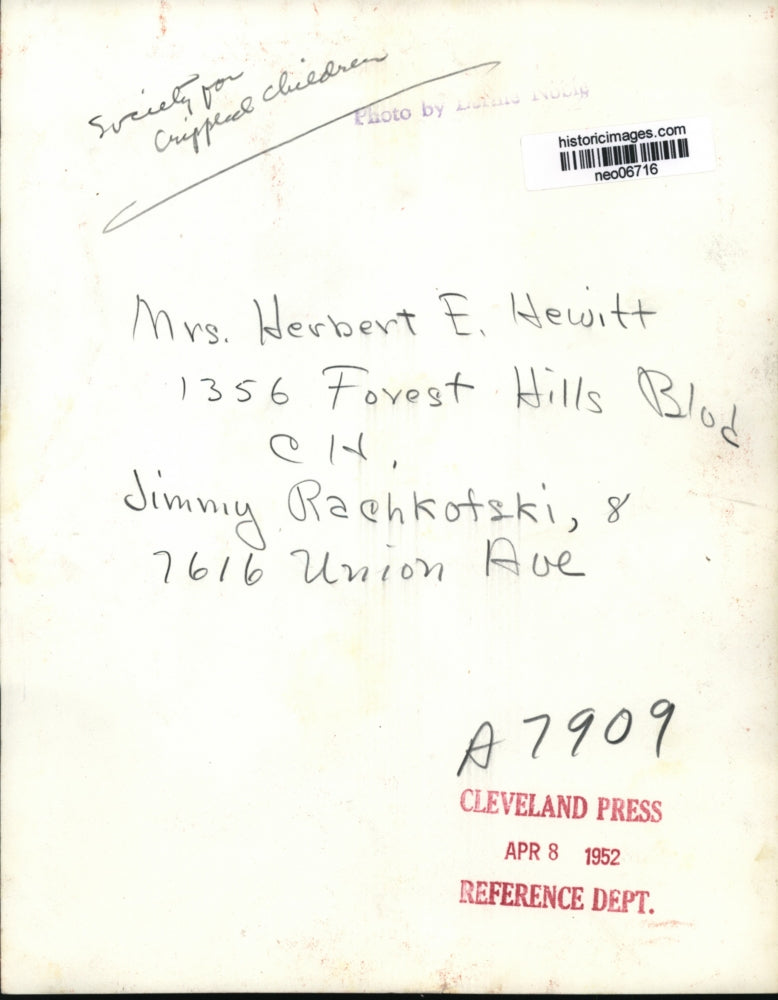 Society for
Crippled Children
Photo by
historicimages.com
neo06716
Mrs. Herbert E. Hewitt
1356 Forest Hills Blvd
C H.
Jimmy Rachkofski, 8
7616 Union Ave
A7909
CLEVELAND PRESS
APR 8 1952
REFERENCE DEPT.